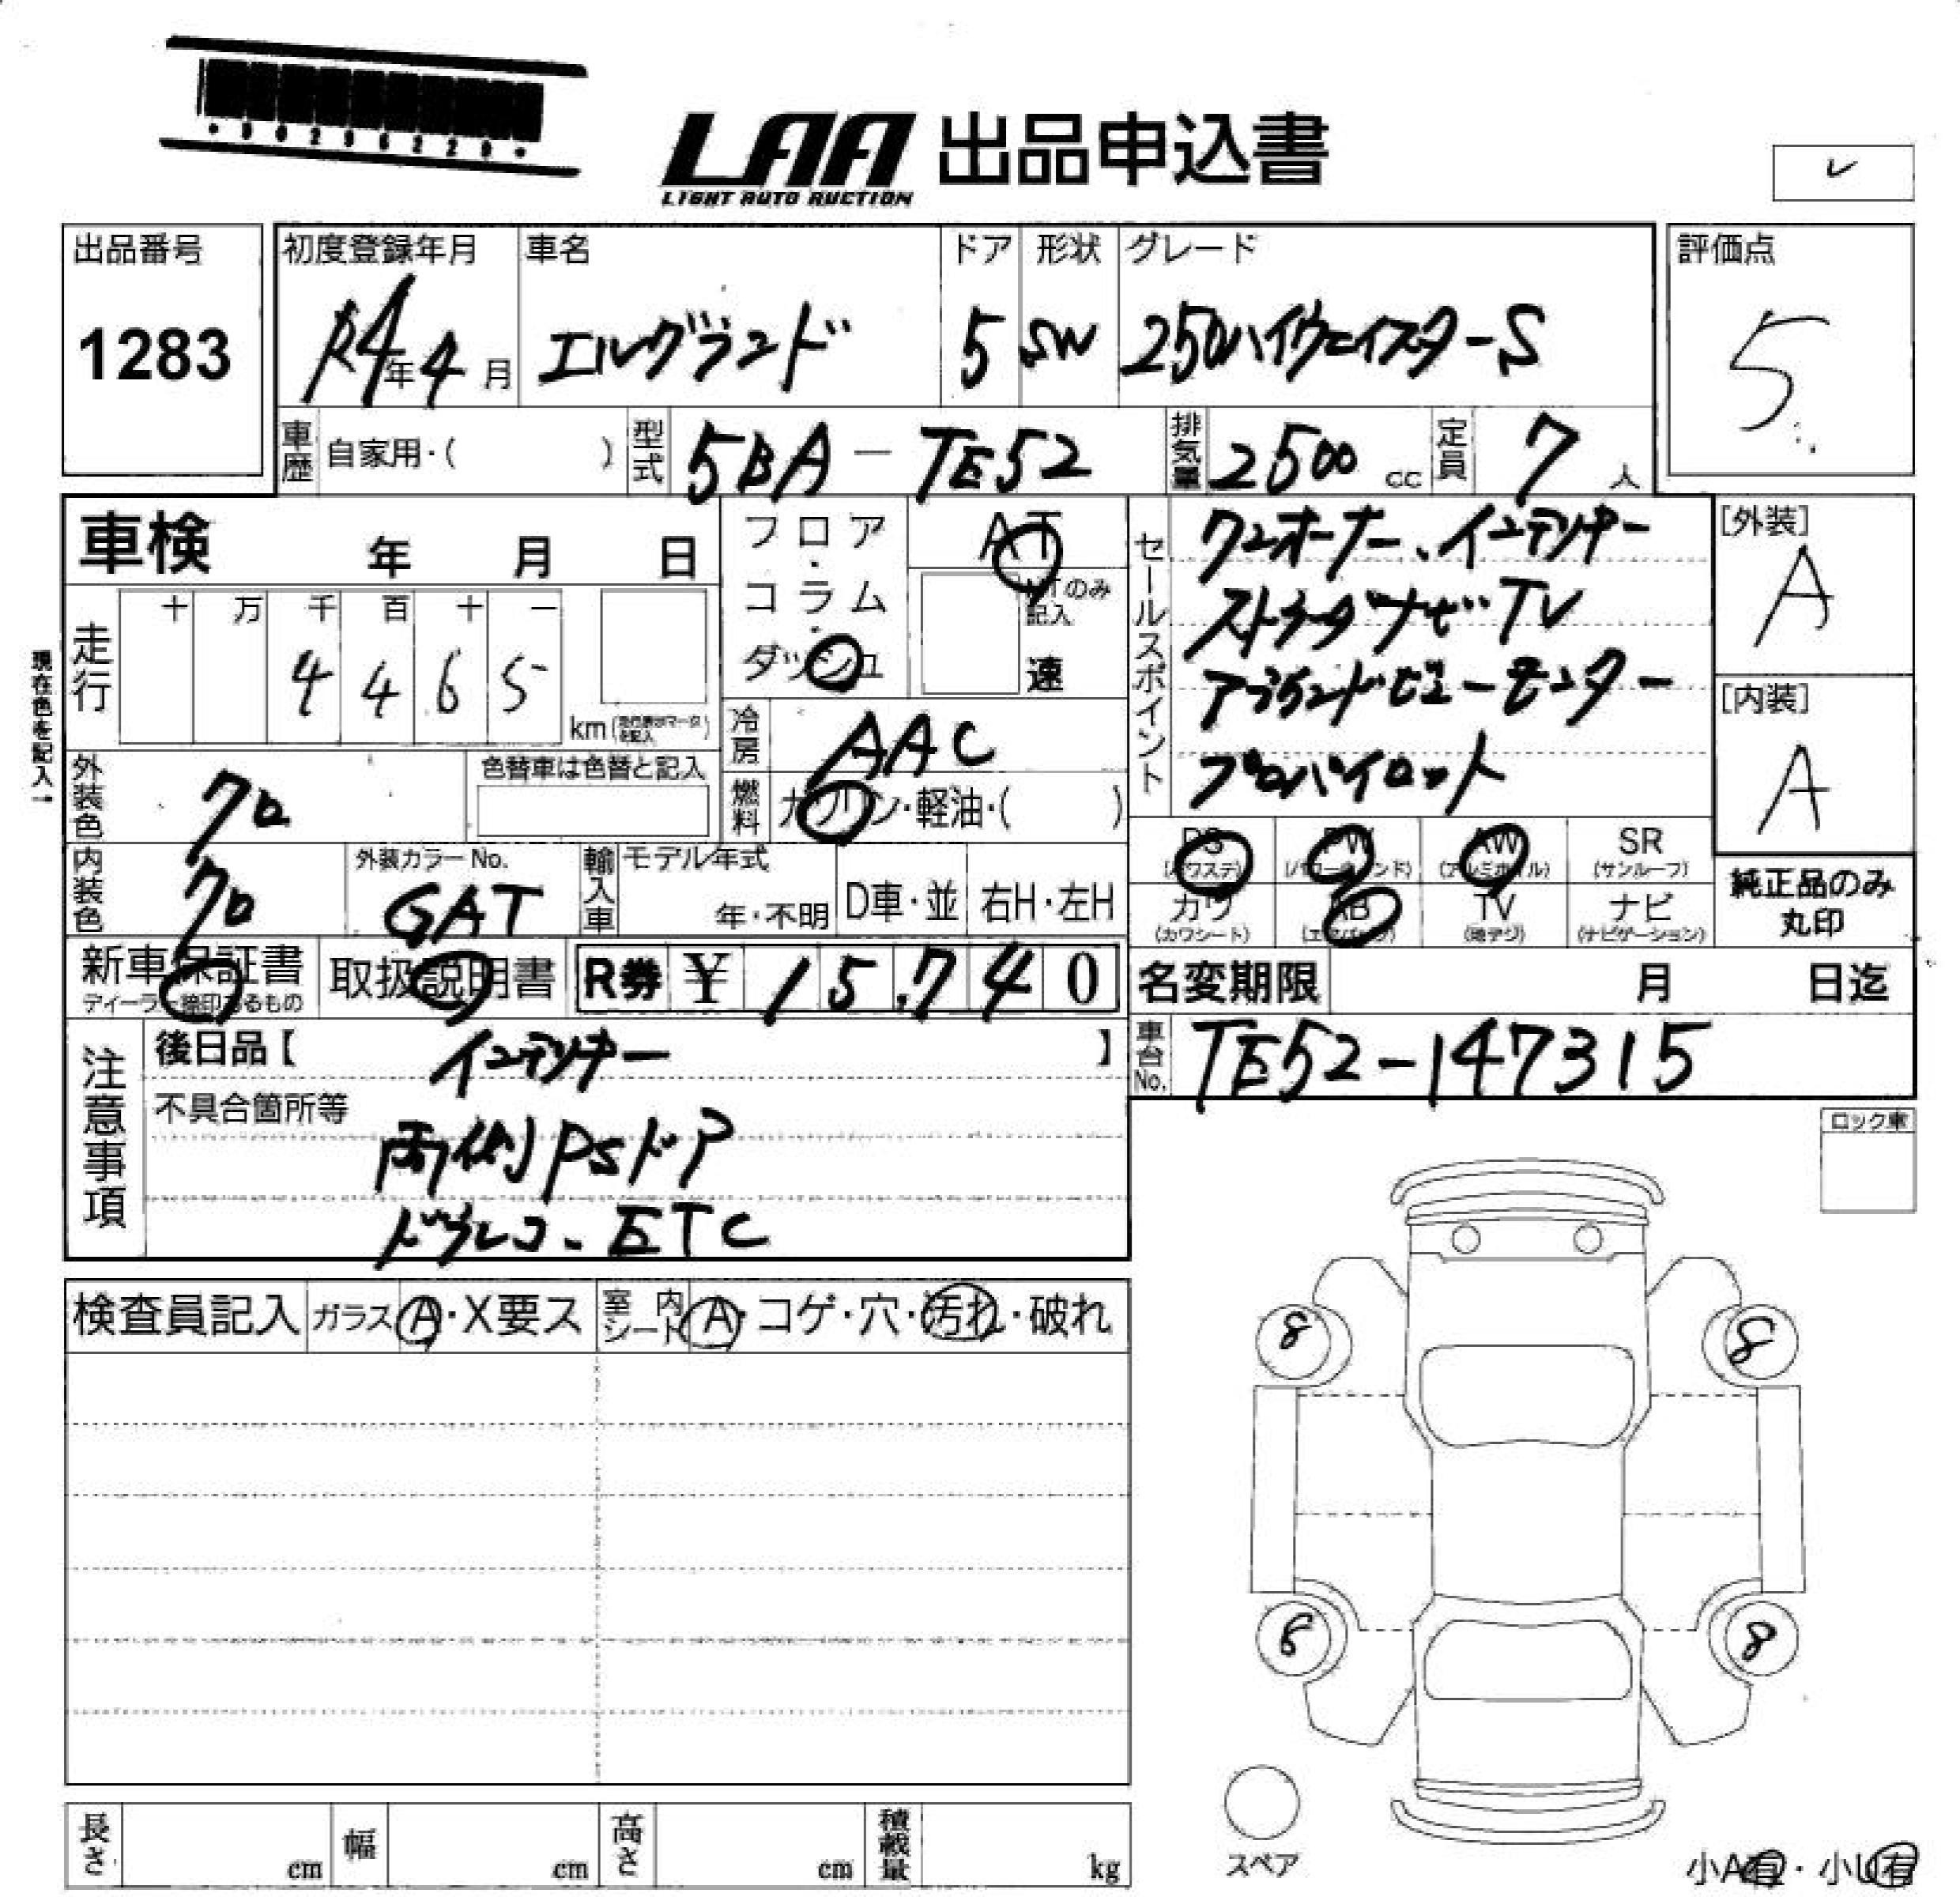 LAA 出品申込書
LIGHT AUTO AUCTION
レ
出品番号
1283
初度登録年月
R4年4月
車名
エルグランド
ドア
5
形状
SW
グレード
250ハイウェイスターS
評価点
5
車歴 自家用・( )
型式 5BA-TE52
排気量 2500 cc
定員 7人
車検 年 月 日
フロア・コラム・ダッシュ
AT
MTのみ記入
速
走行
十 万 千 百 十 一
4 4 6 5
km
現在色を記入→
冷房 AAC
燃料 ガソリン・軽油・( )
セールスポイント
ワンオーナー、インテリキー
ストラーダナビ・TV
アラウンドビューモニター
プロパイロット
[外装]
A
[内装]
A
外装色 クロ
色替車は色替と記入
内装色 クロ
外装カラーNo.
GAT
輸入車
モデル年式
年・不明
D車・並
右H・左H
PS (パワステ)
PW (パワーウィンド)
AW (アルミホイル)
SR (サンルーフ)
カワ (カワシート)
AB (エアバッグ)
TV (地デジ)
ナビ (ナビゲーション)
純正品のみ
丸印
新車保証書
ディーラー捺印あるもの
取扱説明書
R券 ¥ 15,740
名変期限 月 日迄
車台No. TE52-147315
注意事項
後日品【 インテリキー 】
不具合箇所等
両側PSドア
ドラレコ、ETC
ロック車
検査員記入
ガラス A・X要ス
室内シート A・コゲ・穴・汚れ・破れ
8
8
6
8
スペア
長さ cm
幅 cm
高さ cm
積載量 kg
小A有・小U有